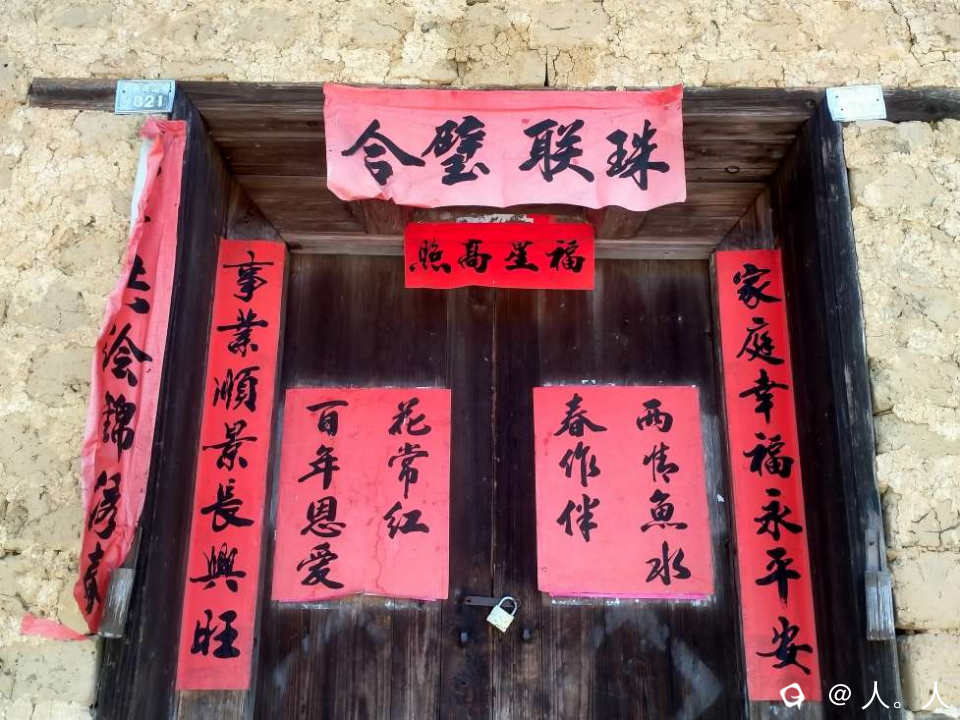 珠联璧合
福星高照
家庭幸福永平安
事業順景長興旺
两情魚水
春作伴
百年恩爱
花常红
绘锦绣春
821
@人。人